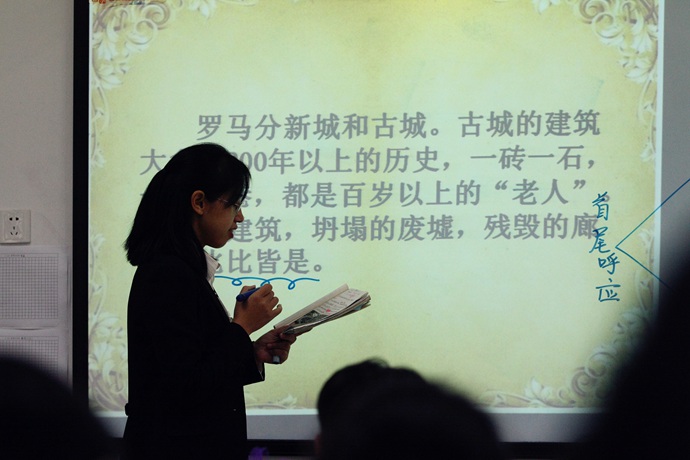 罗马分新城和古城。古城的建筑
大 00年以上的历史，一砖一石，
，都是百岁以上的“老人”
建筑，坍塌的废墟，残毁的廊
比皆是。
首尾呼应